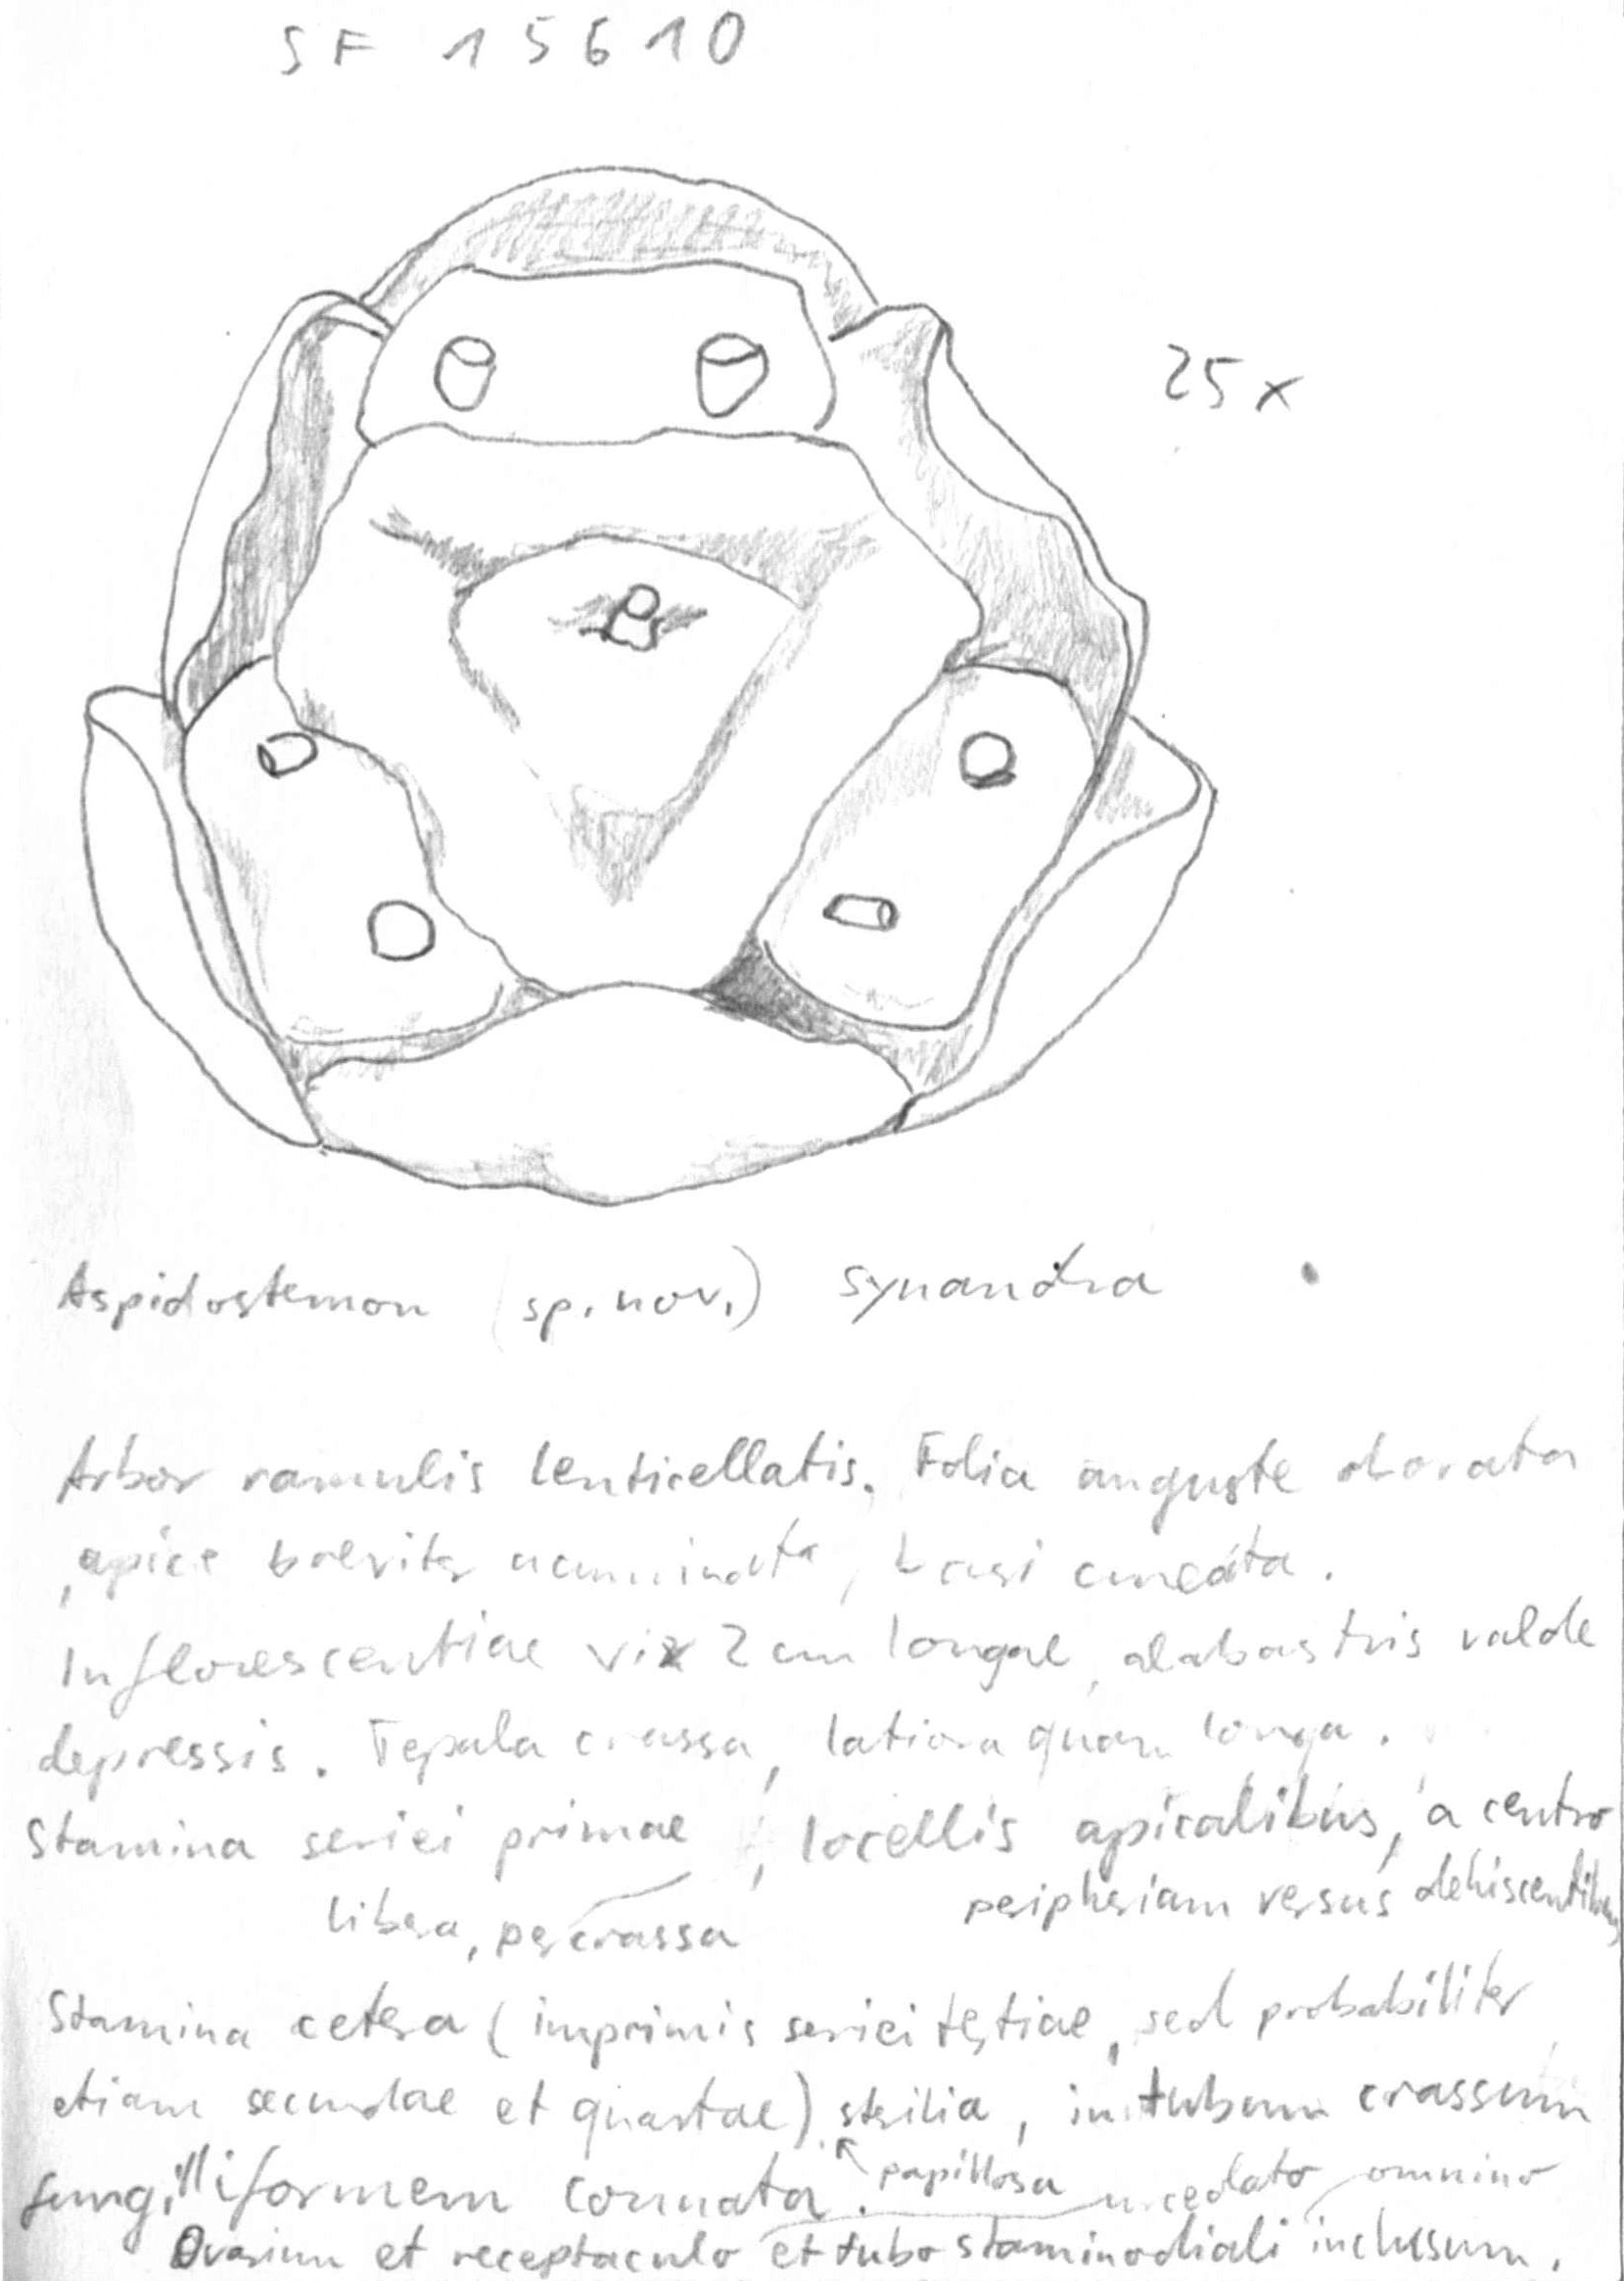 SF 15610
25 x
Aspidostemon (sp. nov.) synandra
Arbor ramulis lenticellatis. Folia anguste obovata
, apice breviter acuminata, basi cuneata.
Inflorescentiae vix 2 cm longae, alabastris valde
depressis. Tepala crassa, latiora quam longa.
Stamina seriei primae , locellis apicalibus, a centro
libera, percrassa
peripheriam versus dehiscentibus
Stamina cetera (imprimis seriei tertiae, sed probabiliter
etiam secundae et quartae) sterilia, in tubum crassum
fungilliformem connata.
papillosa urceolato omnino
Ovarium et receptaculo et tubo staminodiali inclusum.